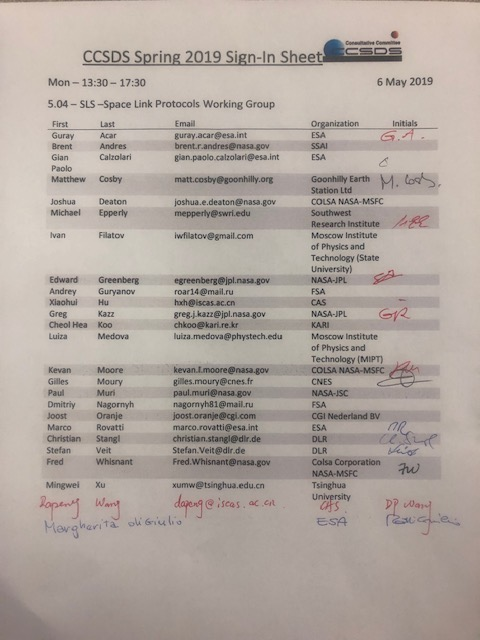 Consultative Committee
CCSDS
CCSDS Spring 2019 Sign-In Sheet
Mon – 13:30 – 17:30 6 May 2019
5.04 – SLS –Space Link Protocols Working Group
First Last Email Organization Initials
Guray Acar guray.acar@esa.int ESA G.A.
Brent Andres brent.r.andres@nasa.gov SSAI
Gian Calzolari gian.paolo.calzolari@esa.int ESA
Paolo
Matthew Cosby matt.cosby@goonhilly.org Goonhilly Earth M. Cosby
Station Ltd
Joshua Deaton joshua.e.deaton@nasa.gov COLSA NASA-MSFC
Michael Epperly mepperly@swri.edu Southwest
Research Institute
Ivan Filatov iwfilatov@gmail.com Moscow Institute
of Physics and
Technology (State
University)
Edward Greenberg egreenberg@jpl.nasa.gov NASA-JPL
Andrey Guryanov roar14@mail.ru FSA
Xiaohui Hu hxh@iscas.ac.cn CAS
Greg Kazz greg.j.kazz@jpl.nasa.gov NASA-JPL
Cheol Hea Koo chkoo@kari.re.kr KARI
Luiza Medova luiza.medova@phystech.edu Moscow Institute
of Physics and
Technology (MIPT)
Kevan Moore kevan.l.moore@nasa.gov COLSA NASA-MSFC
Gilles Moury gilles.moury@cnes.fr CNES
Paul Muri paul.muri@nasa.gov NASA-JSC
Dmitriy Nagornyh nagornyh81@mail.ru FSA
Joost Oranje joost.oranje@cgi.com CGI Nederland BV
Marco Rovatti marco.rovatti@esa.int ESA
Christian Stangl christian.stangl@dlr.de DLR
Stefan Veit Stefan.Veit@dlr.de DLR
Fred Whisnant Fred.Whisnant@nasa.gov Colsa Corporation FW
NASA-MSFC
Mingwei Xu xumw@tsinghua.edu.cn Tsinghua
University
Dapeng Wang dapeng@iscas.ac.cn CAS DP Wang
Margherita di Giulio ESA